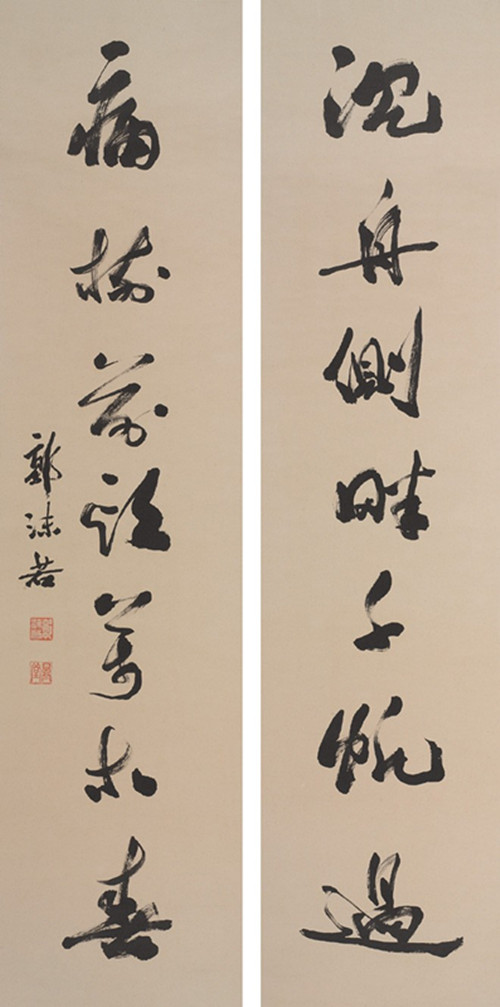 沉舟側畔千帆過
病樹前頭萬木春
郭沫若